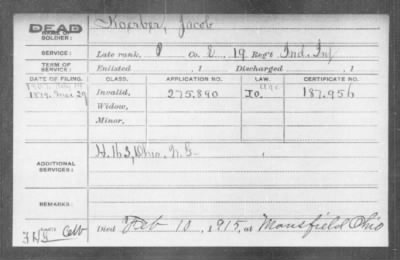 DEAD
NAME OF SOLDIER: Koerber, Jacob
SERVICE: Late rank, P Co. E, 19 Reg't Ind. Inf
TERM OF SERVICE: Enlisted , 1 Discharged , 1
DATE OF FILING. CLASS. APPLICATION NO. LAW. CERTIFICATE NO.
1879. Mar 29 Invalid, 275.890 Io. 187.956
Widow,
Minor,
ADDITIONAL SERVICES: H. 163, Ohio, N. G.
REMARKS:
Died Feb 10, 1915, at Mansfield Ohio